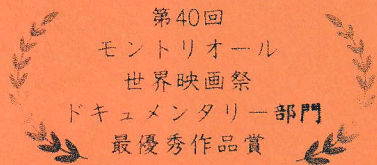 第40回
モントリオール
世界映画祭
ドキュメンタリー部門
最優秀作品賞